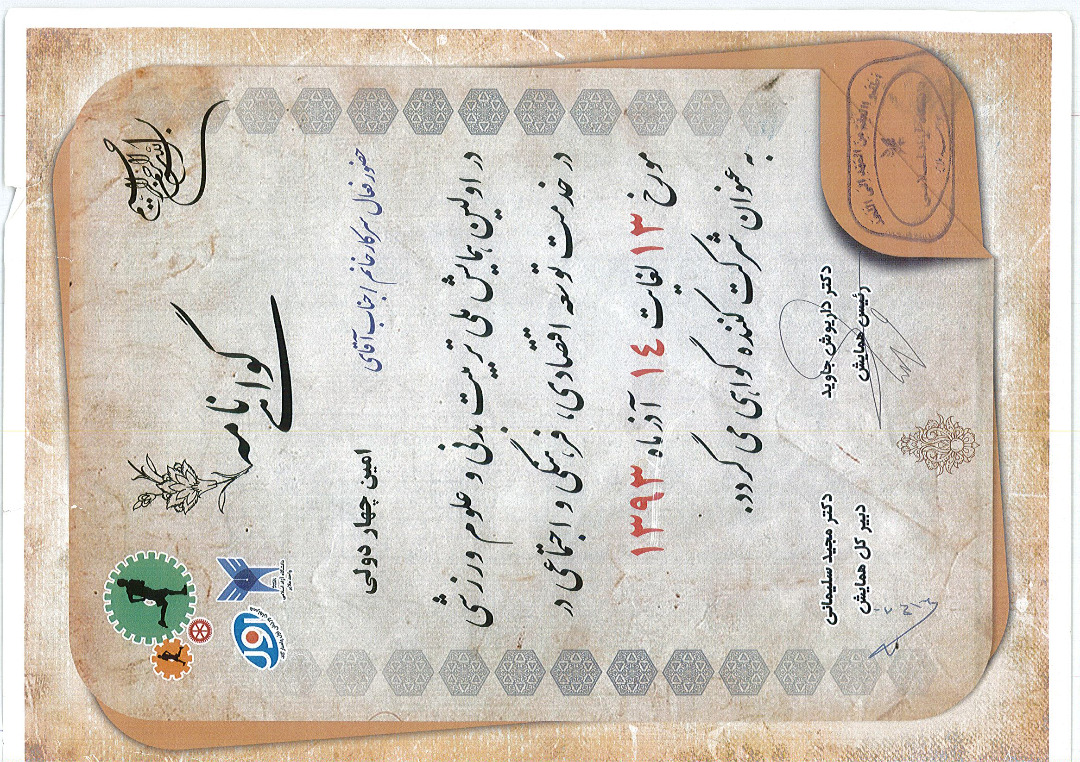 بسم الله الرحمن الرحیم
گواهی نامه
حضور فعال سرکار خانم / جناب آقای
امین چهار دولی
در اولین همایش ملی تربیت بدنی و علوم ورزشی
در خدمت توسعه اقتصادی، فرهنگی و اجتماعی در
مورخ ۱۳ لغایت ۱٤ آذرماه ۱۳۹۳
به عنوان شرکت کننده گواهی می گردد.
دکتر داریوش جاوید
رئیس همایش
دکتر مجید سلیمانی
دبیر کل همایش
دانشگاه آزاد اسلامی